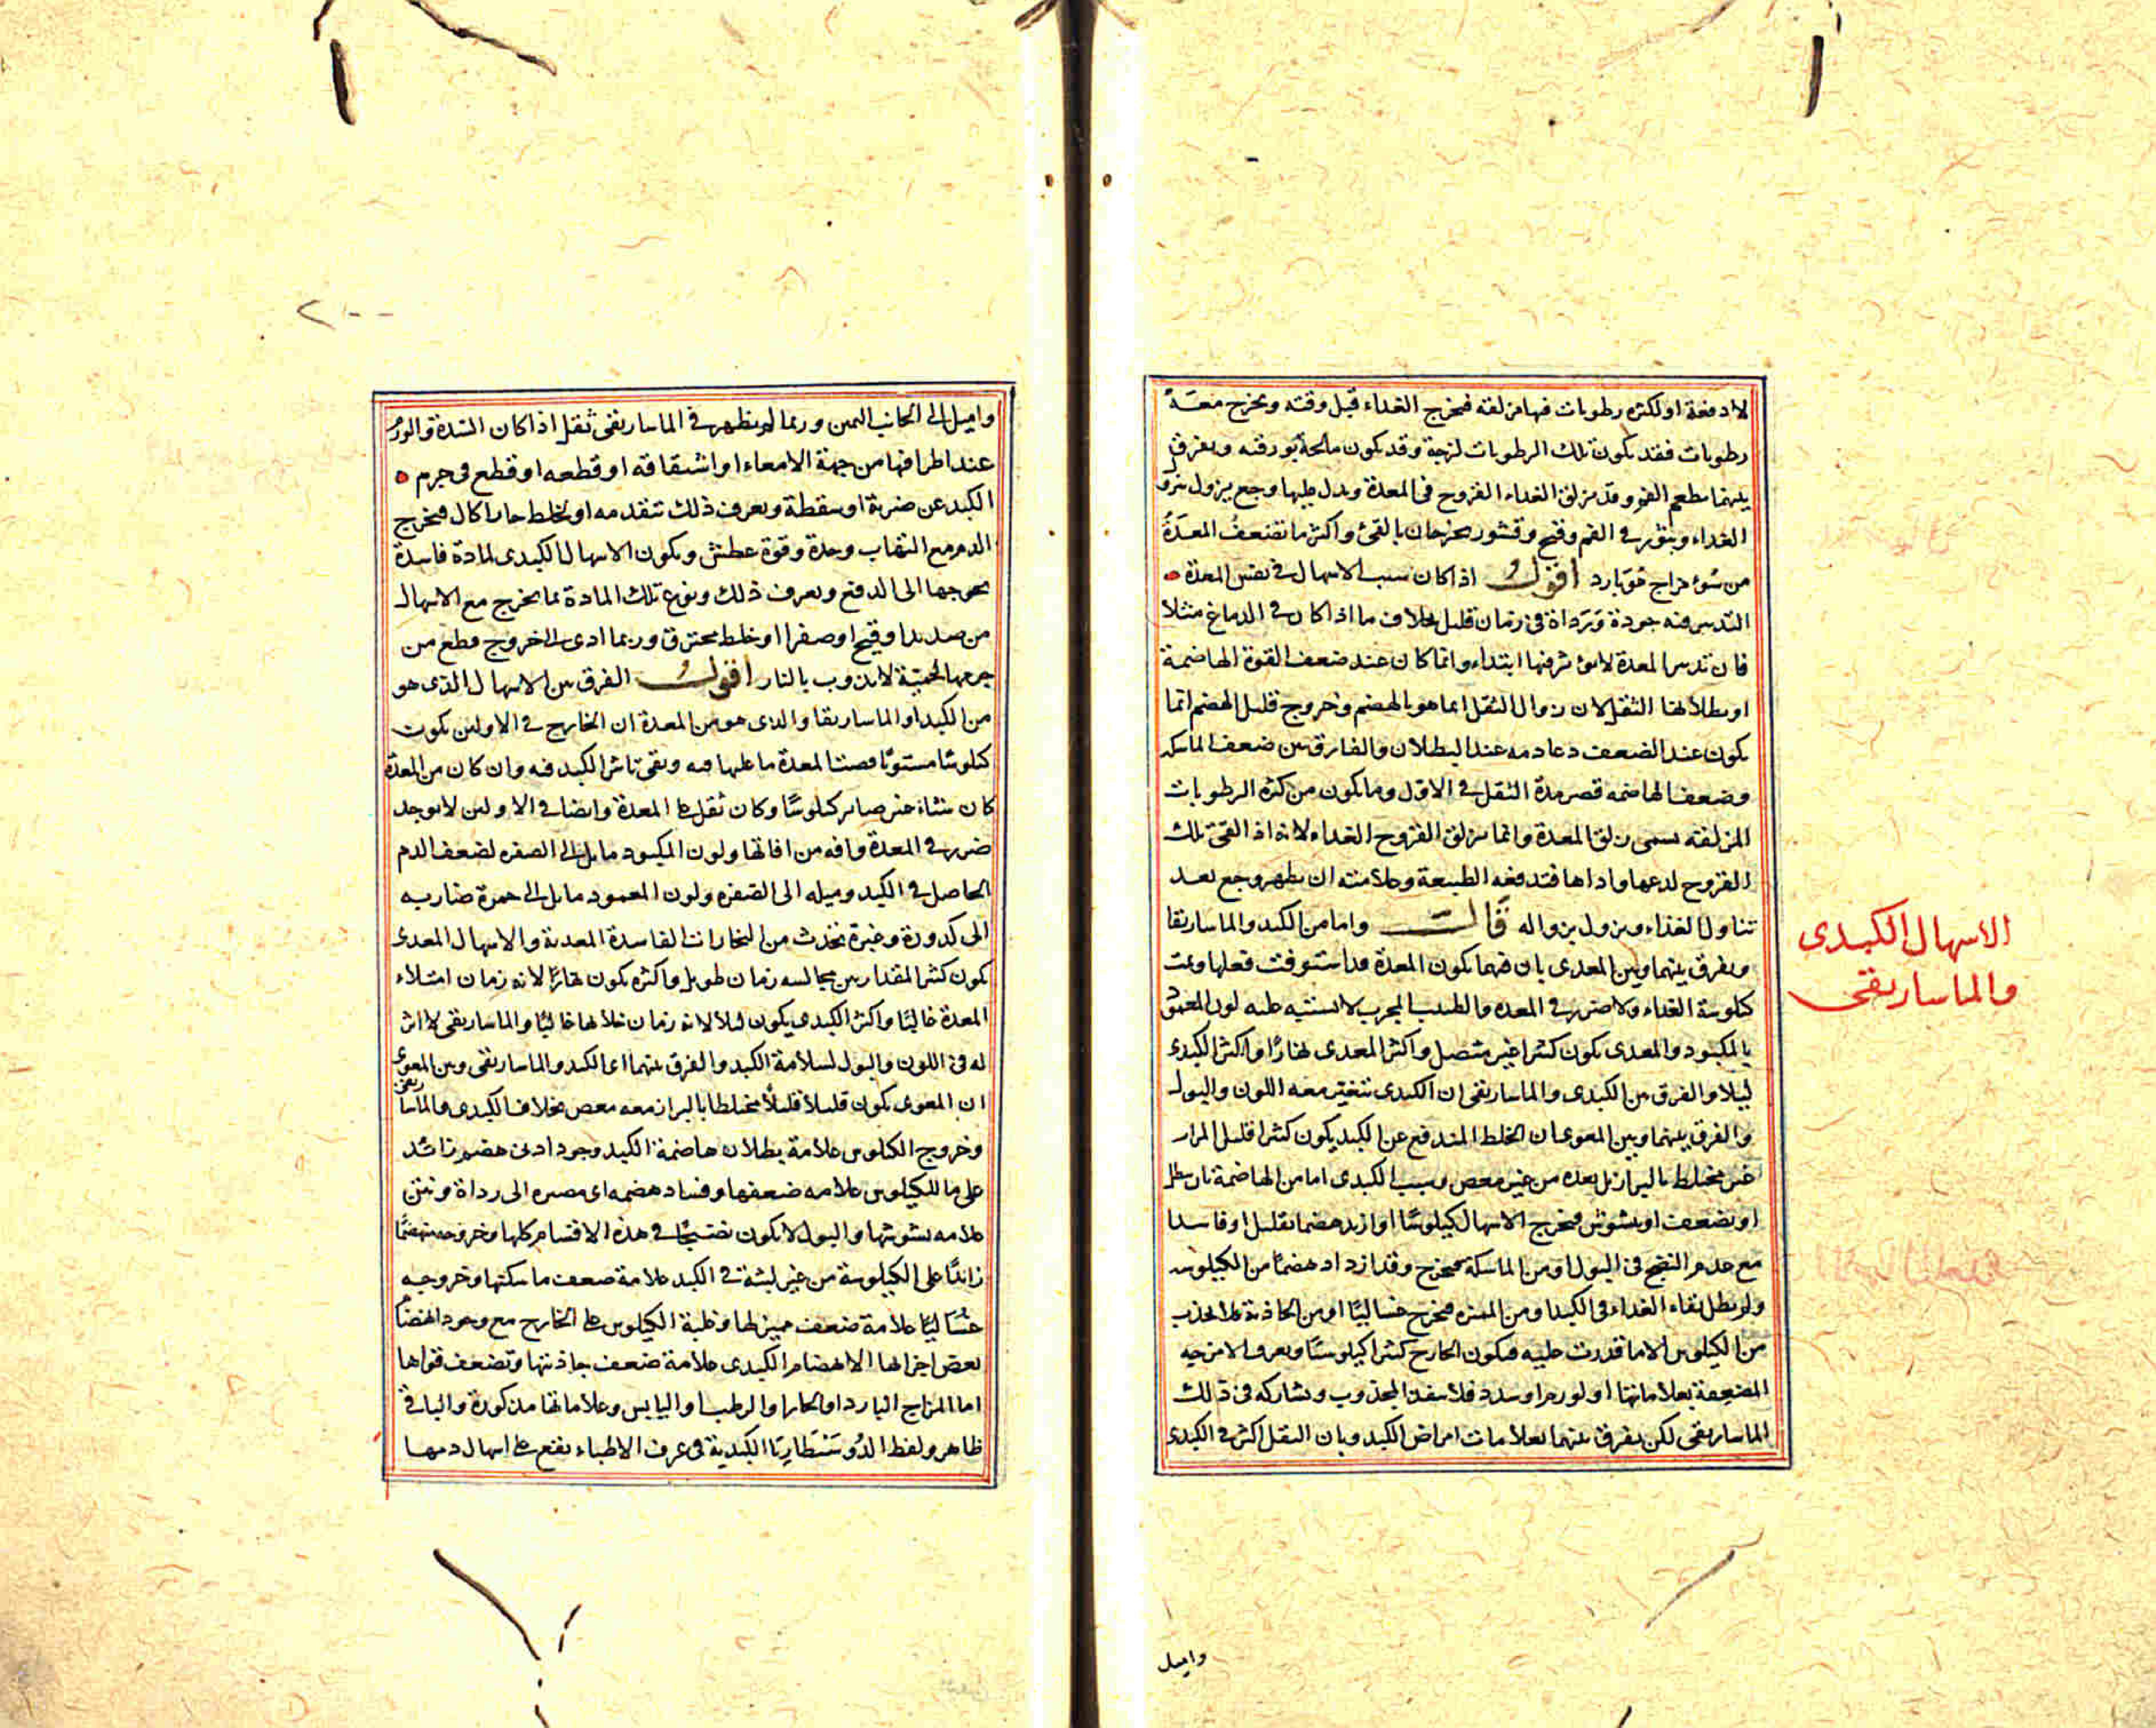 لا دفعة او لكثره رطوبات فيها مزلقه فيخرج الغداء قبل وقته ويخرج معـه
رطوبات فقد يكون تلك الرطوبات لزجة وقد يكون مالحة بورقيه ويفرق
بينهما بطعم الفم وقد يزلق الغداء القروح فى المعدة ويدل عليها وجع يزول بنزول
الغداء وبثور فى الفم وقيح وقشور يخرجان بالقئ واكثر ما تضعف المعدة
من سوء مزاج خو بارد اقول اذا كان سبب الاسهال فى نفس المعدة
التدبير فيه جودة ورداة فى زمان قليل بخلاف ما اذا كان فى الدماغ مثلا
فان تدبير المعدة لا يؤثر فيها ابتداء وانما كان عند ضعف القوة الهاضمة
او بطلانها الثقل لان زوال الثقل انما هو بالهضم وخروج قليل الهضم انما
يكون عند الضعف وعادمه عند البطلان والفارق بين ضعف الماسكه
وضعف الهاضمه قصر مدة الثقل فى الاول وما يكون من كثره الرطوبات
المزلقه يسمى زلق المعدة وانما يزلق القروح الغداء لانه اذا لقى تلك
القروح لدعها واداها فتدفعه الطبيعة وعلامته ان يظهر وجع بعد
تناول الغذاء ويزول بزواله قالـــ واما من الكبد والماساريقا
ويفرق بينهما وبين المعدى بان فيهما يكون المعدة قد استوفت فعلها وتمت
كيلوسة الغداء ولا ضرر فى المعده والطبيب المجرب لا يشتبه عليه لون الممعود
بالمكبود والمعدى يكون كثيرا غير متصل واكثر المعدى نهارا واكثر الكبدى
ليلا والفرق بين الكبدى والماساريقى ان الكبدى يتغير معه اللون والبول
والفرق بينهما وبين المعوى ان الخلط المندفع عن الكبد يكون كثيرا قليل المرار
غير مختلط بالبراز بل بعده من غير مغص وسبب الكبدى اما من الهاضمة بان يبطل
او يضعف او يتشوش فيخرج الاسهال كيلوسًا او ازيد هضما بقليل او فاسدا
مع عدم النضج فى البول او من الماسكة فيخرج وقد ازداد هضمًا من الكيلوسه
ولم يطل بقاء الغداء فى الكبد او من المميزه فيخرج غساليًا او من الجاذبة فلا يجذب
من الكيلوس الا ما قدرت عليه فيكون الخارج كثيرا كيلوسًا ويعرف الامزجه
المضعفة بعلاماتها او لورم او سدد فلا ينفذ المجذوب ويشاركه فى ذلك
الماساريقى لكن يفرق بينهما بعلامات امراض الكبد وبان الثقل اكثر فى الكبدى
الاسهال الكبدى
والماساريقى
واميل
٢٠٠
واميل الى الجانب اليمين وربما لم يظهر فى الماساريقى ثقل اذا كان السدة والورم
عند اطرافها من جهة الامعاء او انشقاقه او قطعه او قطع فى جرم
الكبد عن ضربة او سقطة ويعرف ذلك بتقدمه او لخلط حار اكال فيخرج
الدم مع التهاب وحدة وقوة عطش ويكون الاسهال الكبدى لمادة فاسدة
يحوجها الى الدفع ويعرف ذلك ونوع تلك المادة بما يخرج مع الاسهال
من صديد او قيح او صفرا او خلط محترق وربما ادى الى خروج قطع من
جرمها لحمية لا يذوب بالنار اقولـــ الفرق بين الاسهال الذى هو
من الكبد او الماساريقا والدى هو من المعدة ان الخارج فى الاولين يكون
كيلوسًا مستويًا قضت المعدة ما عليها فيه وبقى تاثير الكبد فيه وان كان من المعدة
كان شياء غير صاير كيلوسًا وكان ثقل على المعدة وايضا فى الاولين لا يوجد
ضرر فى المعدة وافه من افاتها ولون المكبود مايل الى الصفره لضعف الدم
الحاصل فى الكبد وميله الى الصفره ولون الممعود مايل الى حمرة ضاربه
الى كدورة وغبرة يحدث من البخارات الفاسدة المعدية والاسهال المعدى
يكون كثير المقدار بين مجالسه زمان طويل واكثره يكون نهارًا لانه زمان امتلاء
المعدة غالبًا واكثر الكبدى يكون ليلا لانه زمان خلاها غالبًا والماساريقى لا اثر
له فى اللون والبول لسلامة الكبد والفرق بينهما اى الكبد والماساريقى وبين المعوى
ان المعوى يكون قليلا قليلًا مختلطا بالبراز معه مغص بخلاف الكبدى والماساريقى
وخروج الكيلوس علامة بطلان هاضمة الكبد وجود ادنى هضم زائد
على ما للكيلوس علامه ضعفها وفساد هضمه اى مصيره الى رداة ونتن
علامه تشوشها والبول لا يكون نضيجًا فى هذه الاقسام كلها وخروجه منهضمًا
زايدًا على الكيلوسة من غير لبثه فى الكبد علامة ضعف ماسكتها وخروجـه
غساليًا علامة ضعف مميزلها وغلبة الكيلوس على الخارج مع وجود انهضام
بعض اجزائها الانهضام الكبدى علامة ضعف جاذبتها وتضعف قواها
اما المزاج البارد او الحار او الرطب او اليابس وعلاماتها مذكورة والباقى
ظاهر ولفظ الدوسنطاريا الكبدية فى عرف الاطباء يقع على اسهال دمها